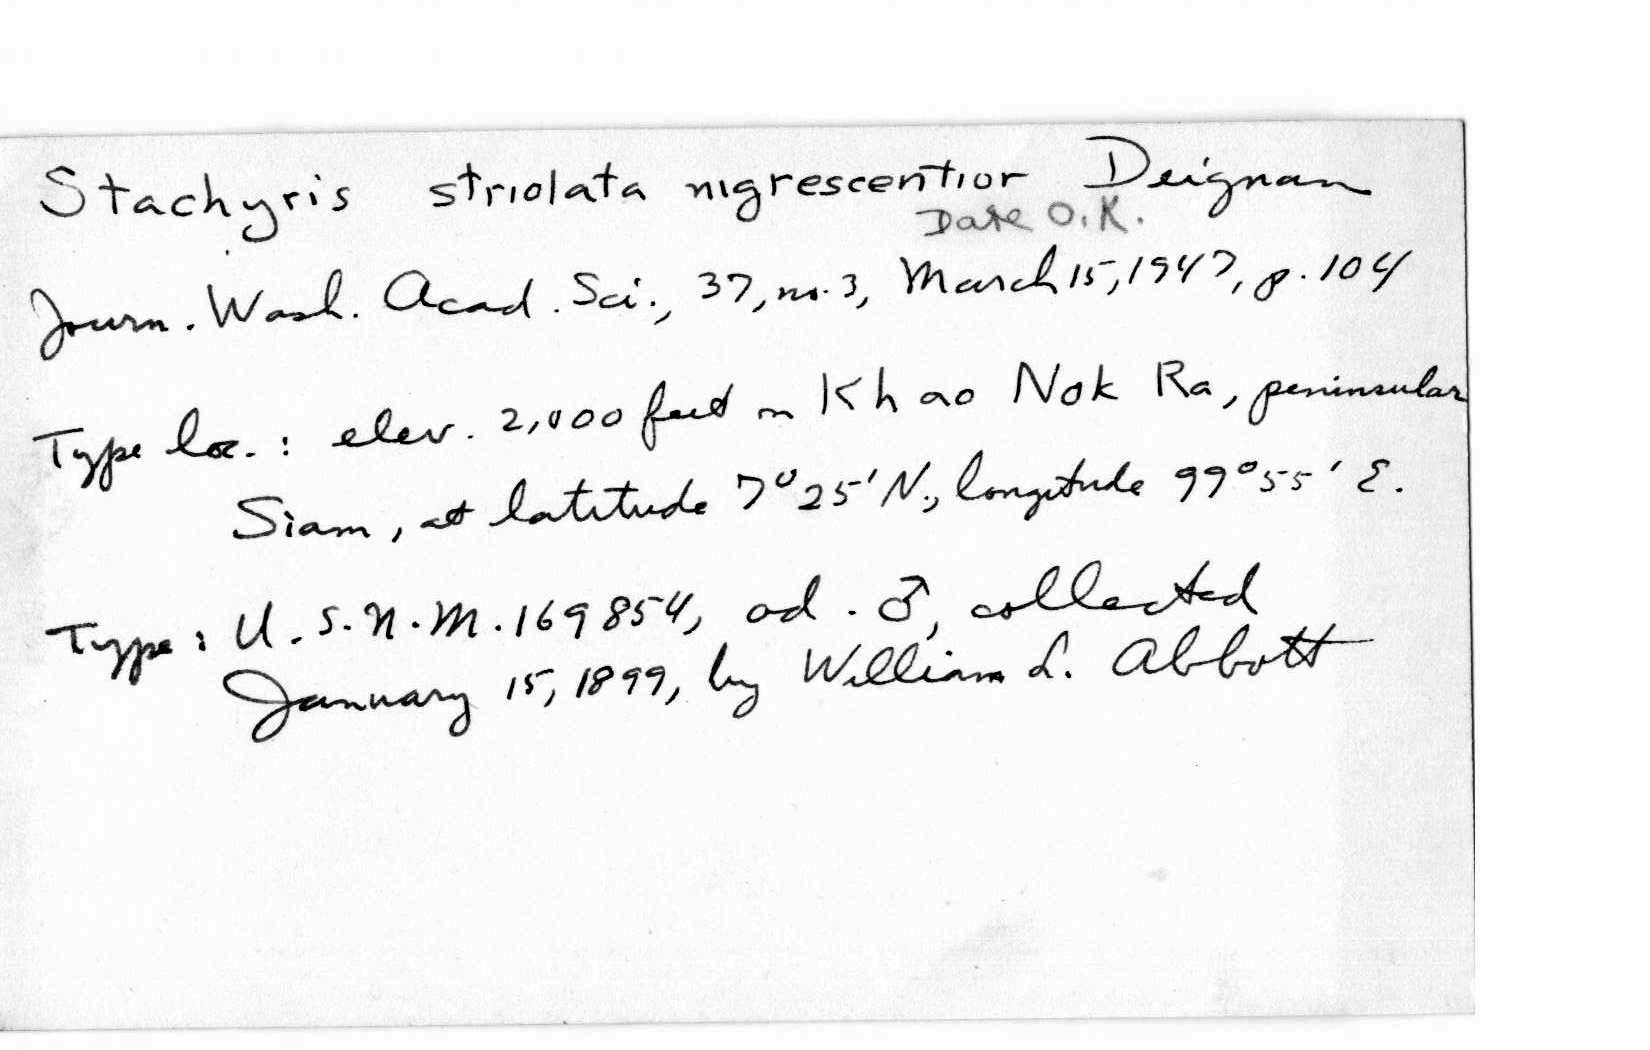 Stachyris striolata nigrescentior Deignan
Date O.K.
Journ. Wash. Acad. Sci., 37, no. 3, March 15, 1947, p. 104
Type loc.: elev. 2,000 feet on Khao Nok Ra, peninsular
Siam, at latitude 7°25' N., longitude 99°55' E.
Type: U.S.N.M. 169854, ad. ♂, collected
January 15, 1899, by William L. Abbott